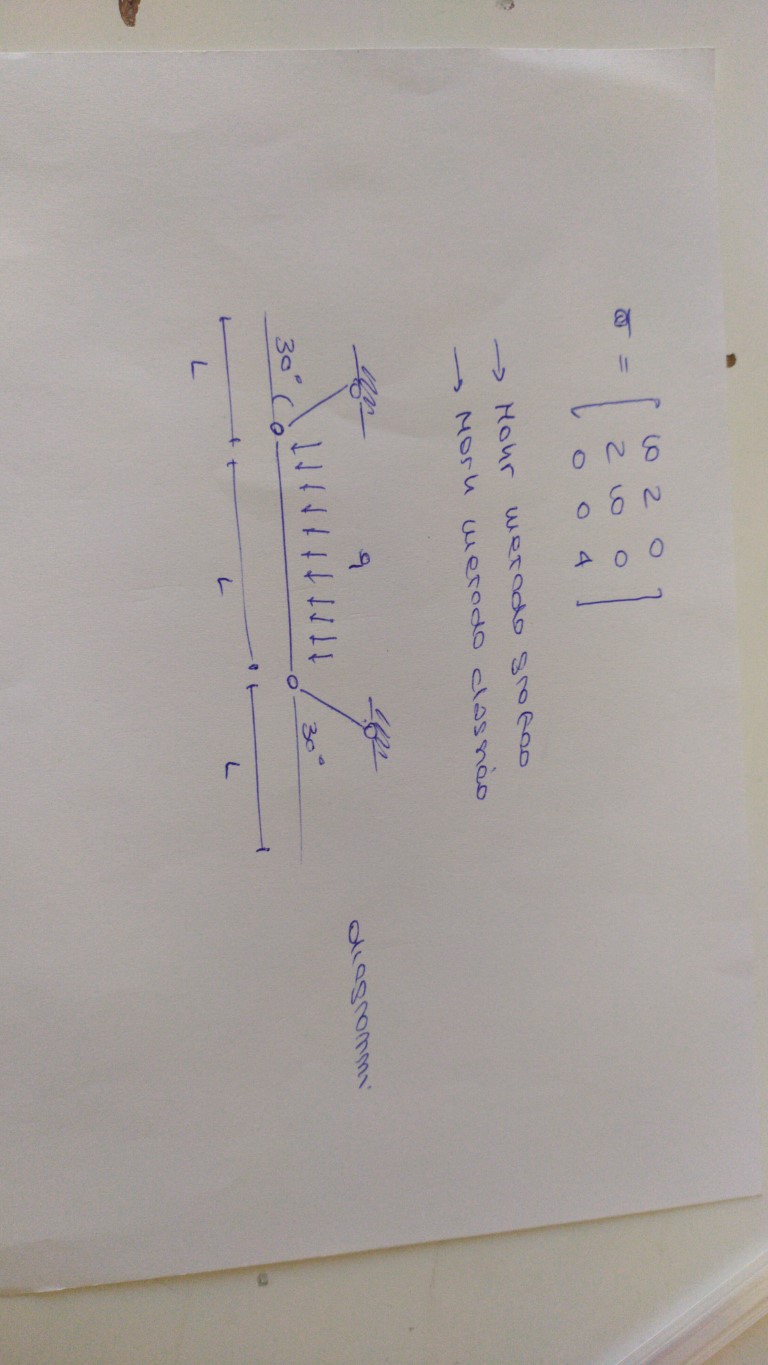 σ = [ 6 2 0
2 6 0
0 0 4 ]
→ Mohr metodo grafico
→ Mohr metodo classico
q
30°
30°
L L L
diagrammi